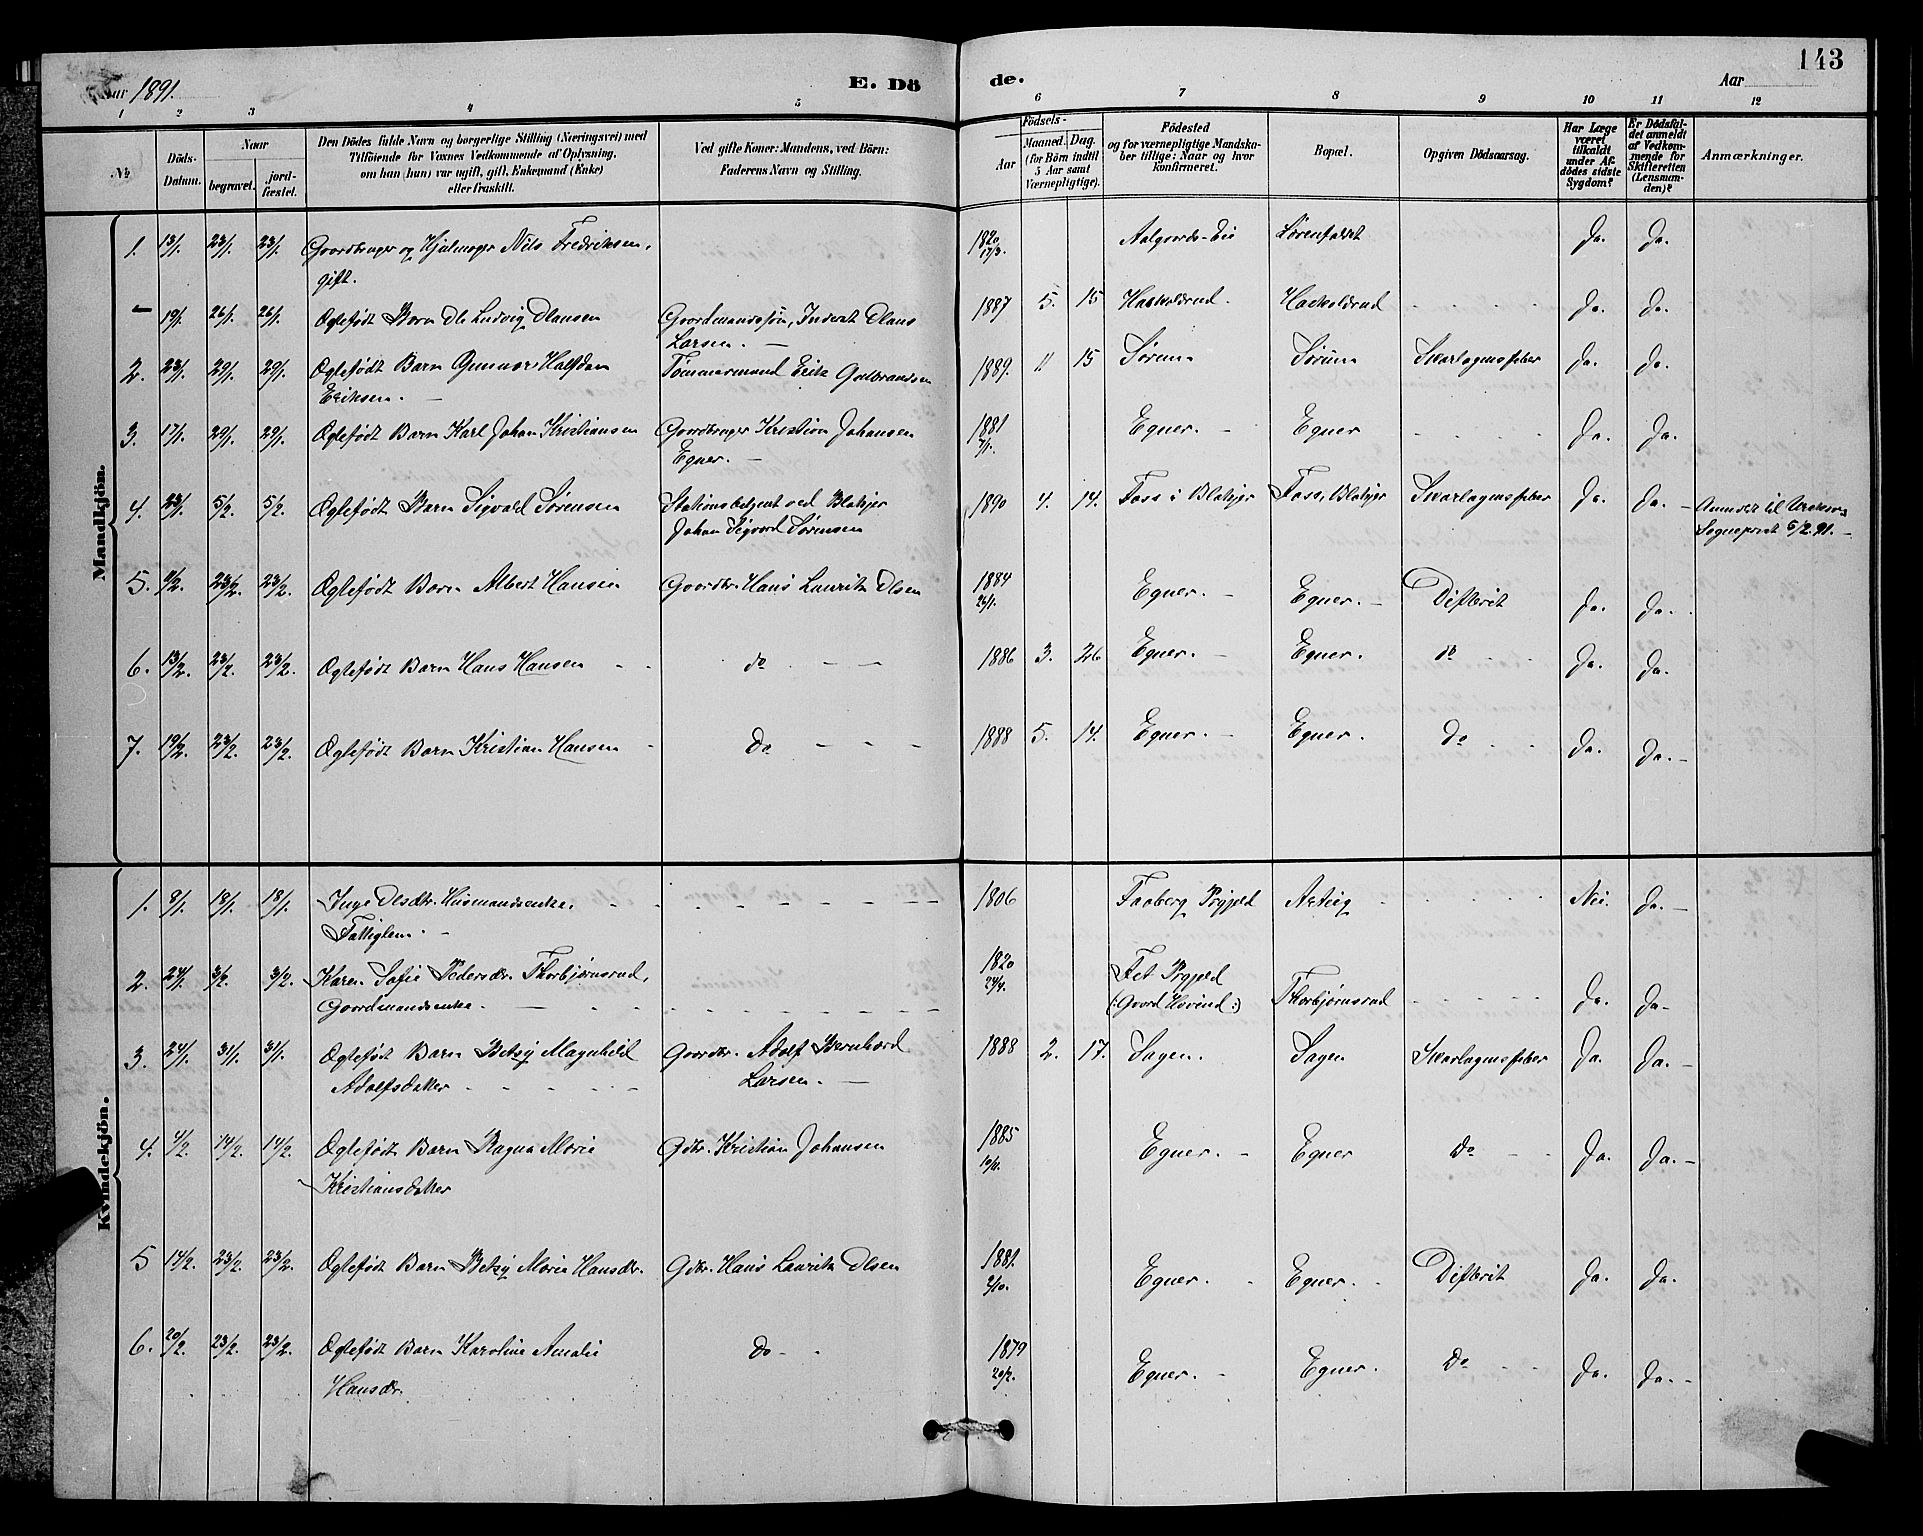 143
Aar 1891.
E. Dö
de.
Aar
1
2
3
4
5
6
7
8
9
10
11
12
No
Döds-
Datum.
Naar
begravet.
jord-
fæstet.
Den Dödes fulde Navn og borgerlige Stilling (Næringsvei) med
Tilföiende for Voxnes Vedkommende af Oplysning,
om han (hun) var ugift, gift, Enkemand (Enke)
eller fraskilt.
Ved gifte Koner: Mandens, ved Börn:
Faderens Navn og Stilling.
Födsels-
Aar
Maaned.
Dag.
(for Börn indtil
5 Aar samt
Værnepligtige).
Födested
og for værnepligtige Mandska-
ber tillige: Naar og hvor
konfirmeret.
Bopæl.
Opgiven Dödsaarsag.
Har Læge
været
tilkaldt
under Af-
dödes sidste
Sygdom?
Er Dödsfal-
det anmeldt
af Vedkom-
mende for
Skifteretten
(Lensman-
den)?
Anmærkninger.
Mandkjön.
1. 13/1. 23/1. 23/1. Gaardbruger og Hjulmager Nils Fredriksen, 1820 Aalgaards-Eie Lørenfaldet Ja. Ja.
gift. 17/3.
– 19/1. 26/1. 26/1. Ægtefødt Barn Ole Ludvig Olausen Gaardmandssøn, Inderst Olaus 1887 5. 15 Haekoldsrud. Haekoldsrud Ja. Ja.
Larsen. –
2. 23/1. 29/1. 29/1. Ægtefødt Barn Gunnar Halfdan Tømmermand Erik Gulbrandsen 1889. 11 15 Sørum Sørum Skarlagensfeber Ja. Ja.
Eriksen. –
3. 17/1. 29/1. 29/1. Ægtefødt Barn Karl Johan Kristiansen Gaardbruger Kristian Johansen 1881 Egner. – Egner Ja. Ja.
Egner. – 7/1.
4. 23/1. 5/2. 5/2. Ægtefødt Barn Sigvald Sørensen Stationsbetjent ved Blakjer 1890 4. 14. Foss i Blakjer Foss, Blakjer Skarlagensfeber Ja. Ja. – Anmeldt til
Johan Sigvard Sørensen Sogneprest 5/2 91. –
5. 9/2. 23/2. 23/2. Ægtefødt Barn Albert Hansen Gaardbr. Hans Lauritz Olsen 1884 Egner. – Egner. – Difterit Ja. Ja.
26/1.
6. 13/2. 23/2. 23/2. Ægtefødt Barn Hans Hansen do – – 1886 3. 26 Egner. – Egner. do Ja. Ja.
7. 19/2. 23/2. 23/2. Ægtefødt Barn Kristian Hansen Do – – – 1888 5. 14. Egner. – Egner. Do Ja. Ja. –
Kvindekjön.
1. 8/1. 18/1. 18/1. Inge Olsdtr. Husmandsenke. 1806 Faaberg Prgjeld Asteig Nei. Ja. –
Fattiglem. –
2. 24/1. 3/2. 3/2. Karen Sofie Pedersdtr. Thorbjørnsrud, 1820 Fet Prgjeld
Gaardmandsenke. 24/9. (: Gaard Hovind :) Thorbjørnsrud Ja. Ja –
3. 24/1. 31/1. 31/1. Ægtefødt Barn Betzy Magnhild Gaardbr. Adolf Bernhard 1888 2. 17. Sagen. Sagen Skarlagensfeber Ja. Ja. –
Adolfsdatter Larsen. –
4. 4/2. 14/2. 14/2. Ægtefødt Barn Ragna Marie Gdbr. Kristian Johansen 1885 Egner. – Egner Do Ja. Ja. –
Kristiansdatter 10/11.
5 14/2. 23/2. 23/2. Ægtefødt Barn Betzy Marie Hansdtr. Gdbr. Hans Lauritz Olsen 1881. Egner. Egner. Difterit Ja. Ja.
2/10.
6. 20/2. 23/2. 23/2. Ægtefødt Barn Karoline Amalie Do 1879 Egner. – Egner. Do Ja. Ja. –
Hansdtr. 20/2.